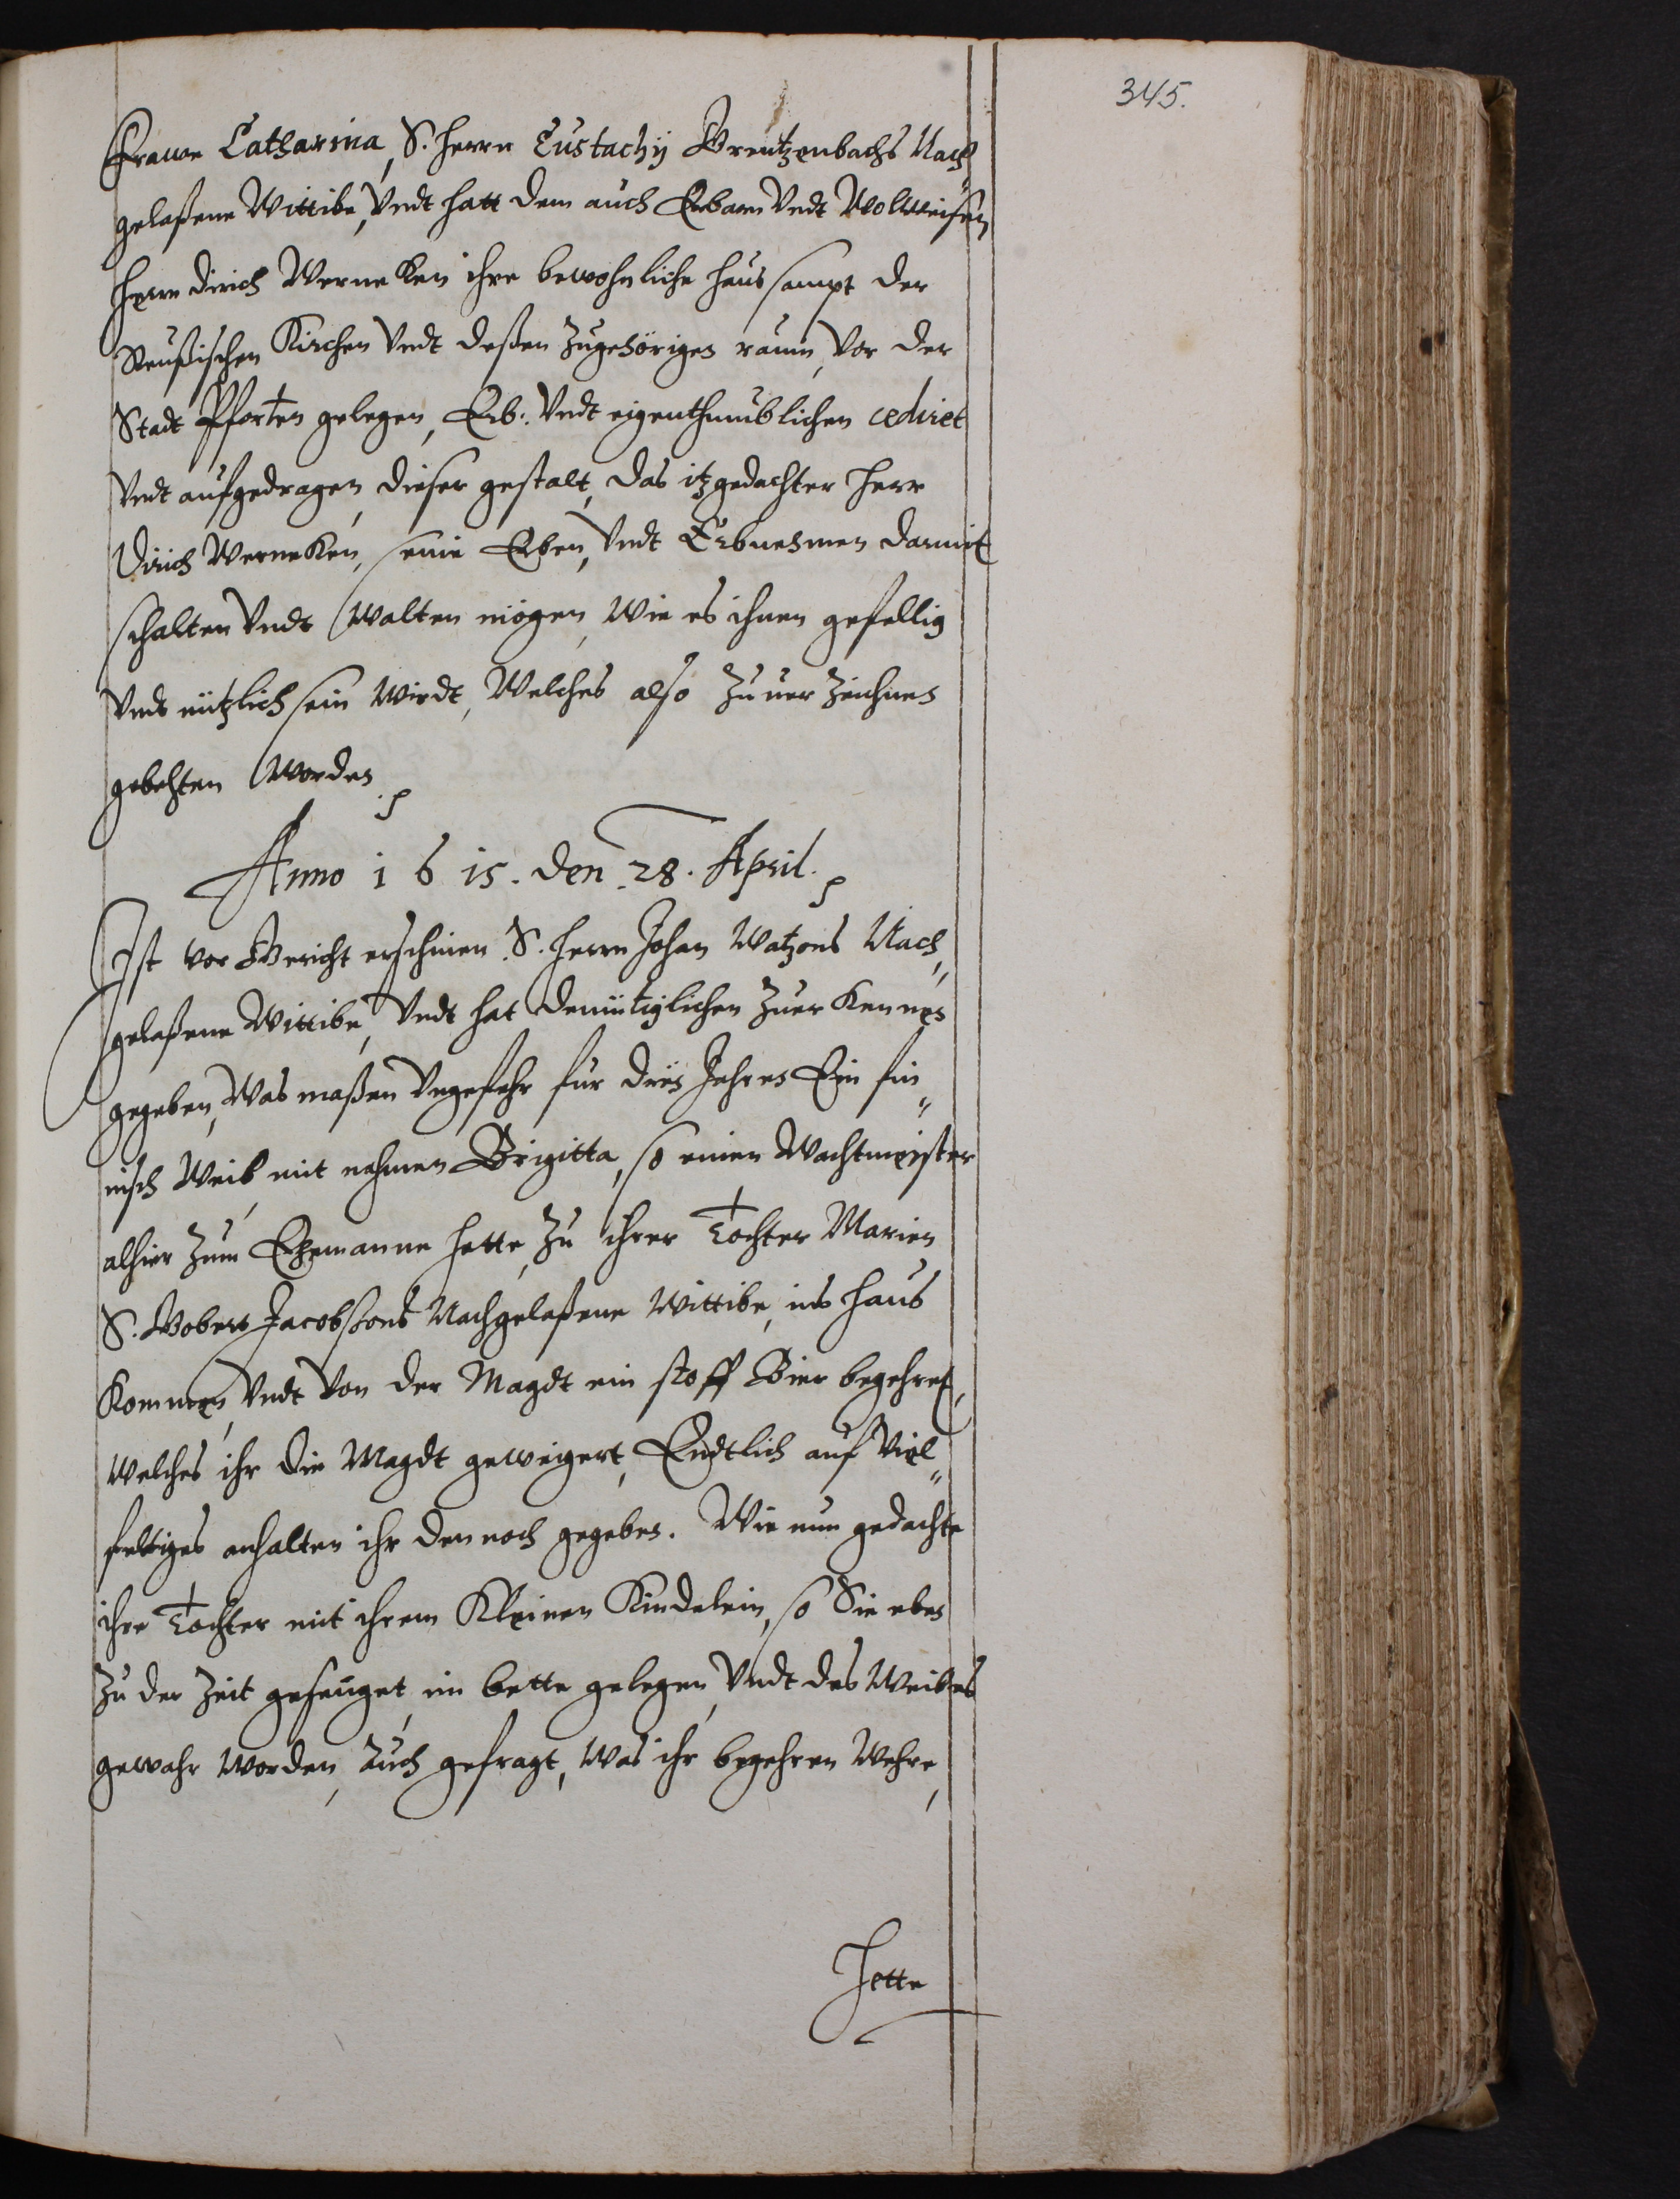 345.
Frauw Catharina, S. Herrn Eustachÿ Grentzenbachs Nach„
gelaßene Wittibe, Vndt hatt dem auch Erbarn Vndt Wolweisen
Herrn Dirich Werneken ihre bewohnliche Haus sampt der
Reußischen Kirchen Vndt deßen Zugehörigen raum, vor der
Stadt Pforten gelegen, Erb: Vndt eigenthumblichen cediret
Vndt aufgedragen, dieser gestalt, das itzgedachter Herr
Dirich Werneken, seine Erben, Vndt Erbnehmen darmit
schalten Vndt walten mögen, Wie es ihnen gefellig
Vndt nützlich sein Wirdt, Welches also Zuuer Zeichnen
gebehten Worden.
Anno 1615. den 28. April.
Ist vor Gericht erschienen S. Herrn Johan Watzons Nach„
gelaßene Wittibe, Vndt hat demütiglichen Zuer Kennen
gegeben, Was maßen Vngefehr für drei Jahren Ein fin„
nisch Weib mit nahmen Brigitta, so einen Wachtmeister
alhier Zum Ehemanne hette, Zu ihrer Tochter Marien
S. Jacobsons Nachgelaßene Wittibe, ins Haus
Kommen, Vndt Von der Magdt ein stoff Bier begehret,
Welches ihr die Magdt geweigert, Endtlich auf Viel„
feltiges anhalten ihr dennoch gegeben. Wie nun gedachte
ihre Tochter mit ihrem Kleinen Kindelein, so Sie eben
Zu der Zeit geseuget, im bette gelegen, Vndt des Weibes
gewahr Worden, Auch gefragt, Was ihr begehren Wehre,
Hette